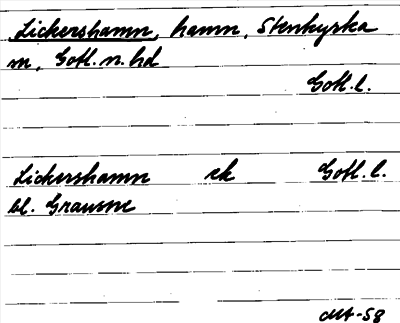 Lickershamn, hamn, Stenkyrka
sn, Gotl. n. hd
Gotl. l.
Lickershamn ek Gotl. l.
bl. Grausne
-58